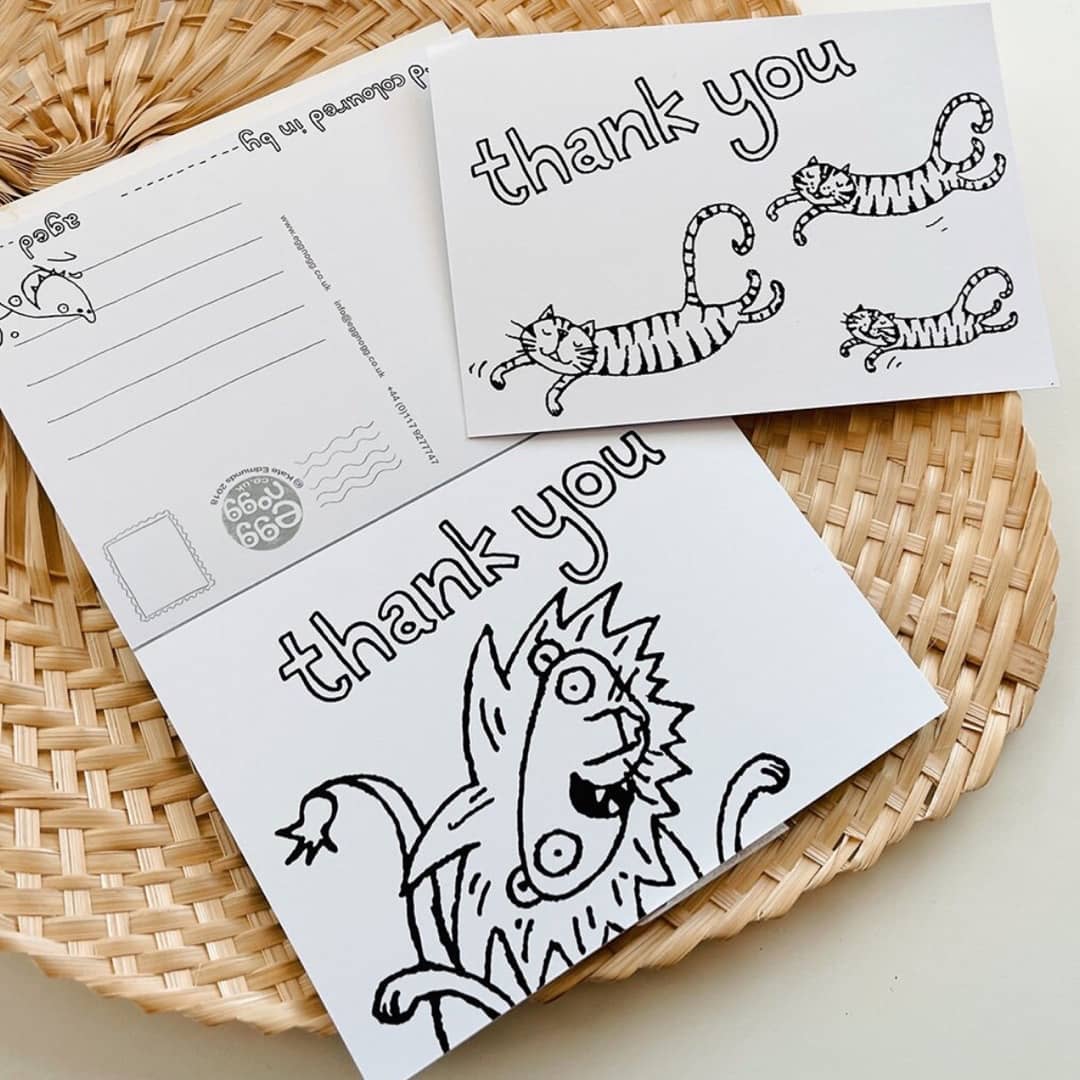 thank you
coloured in by
aged
www.eggnogg.co.uk info@eggnogg.co.uk +44 (0)117 9277747
© Kate Edmunds 2018
egg
nogg
co.uk
thank you